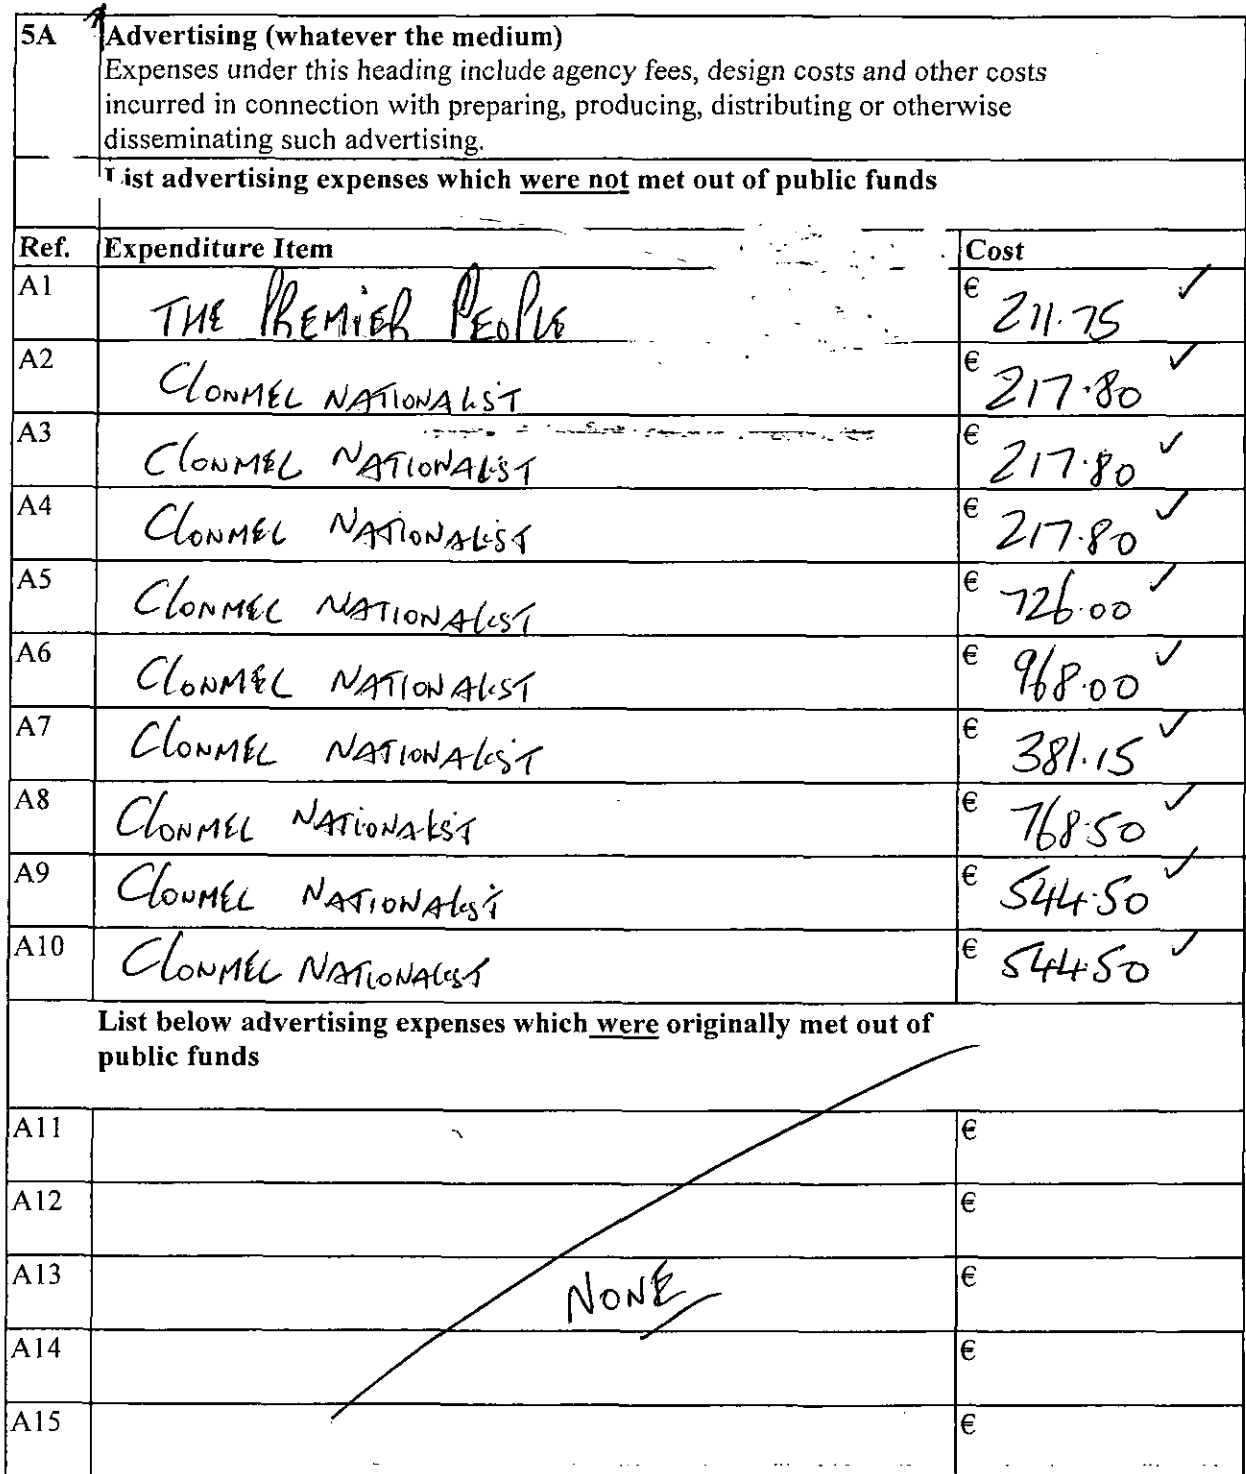 5A Advertising (whatever the medium)
Expenses under this heading include agency fees, design costs and other costs
incurred in connection with preparing, producing, distributing or otherwise
disseminating such advertising.
List advertising expenses which were not met out of public funds
Ref. Expenditure Item Cost
A1 THE PREMIER PEOPLE € 211.75 ✓
A2 CLONMEL NATIONALIST € 217.80 ✓
A3 CLONMEL NATIONALIST € 217.80 ✓
A4 CLONMEL NATIONALIST € 217.80 ✓
A5 CLONMEL NATIONALIST € 726.00 ✓
A6 CLONMEL NATIONALIST € 968.00 ✓
A7 CLONMEL NATIONALIST € 381.15 ✓
A8 CLONMEL NATIONALIST € 768.50 ✓
A9 CLONMEL NATIONALIST € 544.50 ✓
A10 CLONMEL NATIONALIST € 544.50 ✓
List below advertising expenses which were originally met out of
public funds
A11 €
A12 €
A13 NONE €
A14 €
A15 €